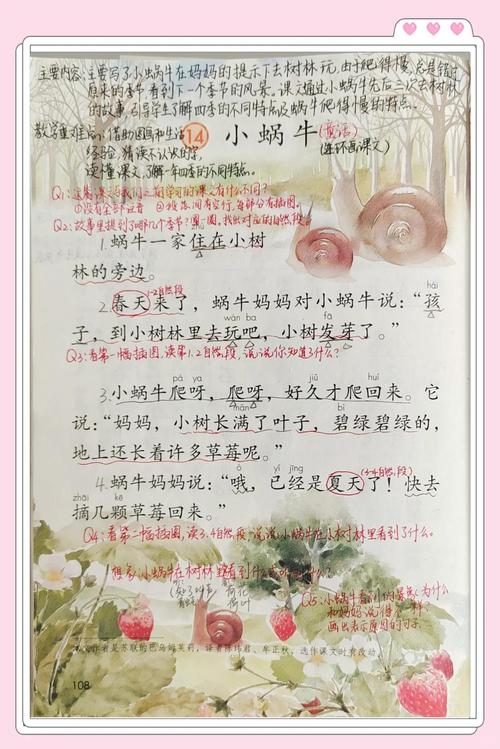 主要内容:主要写了小蜗牛在妈妈的提示下去树林玩,由于爬得慢,总是错过
原来的季节看到下一个季节的风景。课文通过小蜗牛先后三次去树林
的故事,引导学生了解四季的不同特点及蜗牛爬得慢的特点。
教学重难点:借助图画和生活
经验,猜读不认识的字,
读懂课文,了解一年四季的不同特点。
14 小蜗牛(童话)
(连环画课文)
Q1:这篇课文与我们之前学习的课文有什么不同?
①没有全部注音 ②段落间有空行,每部分有插图。
Q2:故事里提到了哪几个季节?圈一圈,找出对应的自然段。
1.蜗牛一家住在小树
林的旁边。
1-2自然段
hái
2.春天来了,蜗牛妈妈对小蜗牛说:“孩
wán ba fā
子,到小树林里去玩吧,小树发芽了。”
Q3:看第一幅插图,读第1.2自然段,说说你知道了什么?
pá ya jiǔ huí
3.小蜗牛爬呀,爬呀,好久才爬回来。它
mǎn bì
说:“妈妈,小树长满了叶子,碧绿碧绿的,
地上还长着许多草莓呢。”
ò yǐ jīng (3-4自然段)
4.蜗牛妈妈说:“哦,已经是夏天了!快去
zhāi kē
摘几颗草莓回来。”
Q4:看第二幅插图,读3.4自然段,说说小蜗牛在小树林里看到了什么。
想象:小蜗牛在树林里看到什么
荷花
荷叶
为什么
和妈妈说得不一样?
画出表示原因的句子
本文作者是苏联的巴乌姆芙莉,译者陈炜君、牟正秋,选作课文时有改动。
108